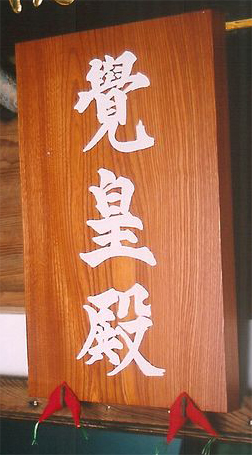 覺皇殿